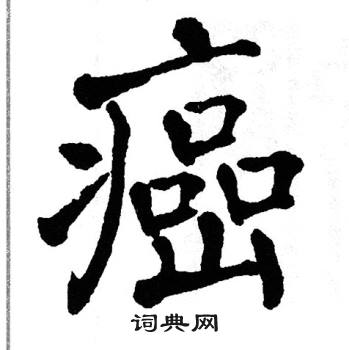 癌
词典网